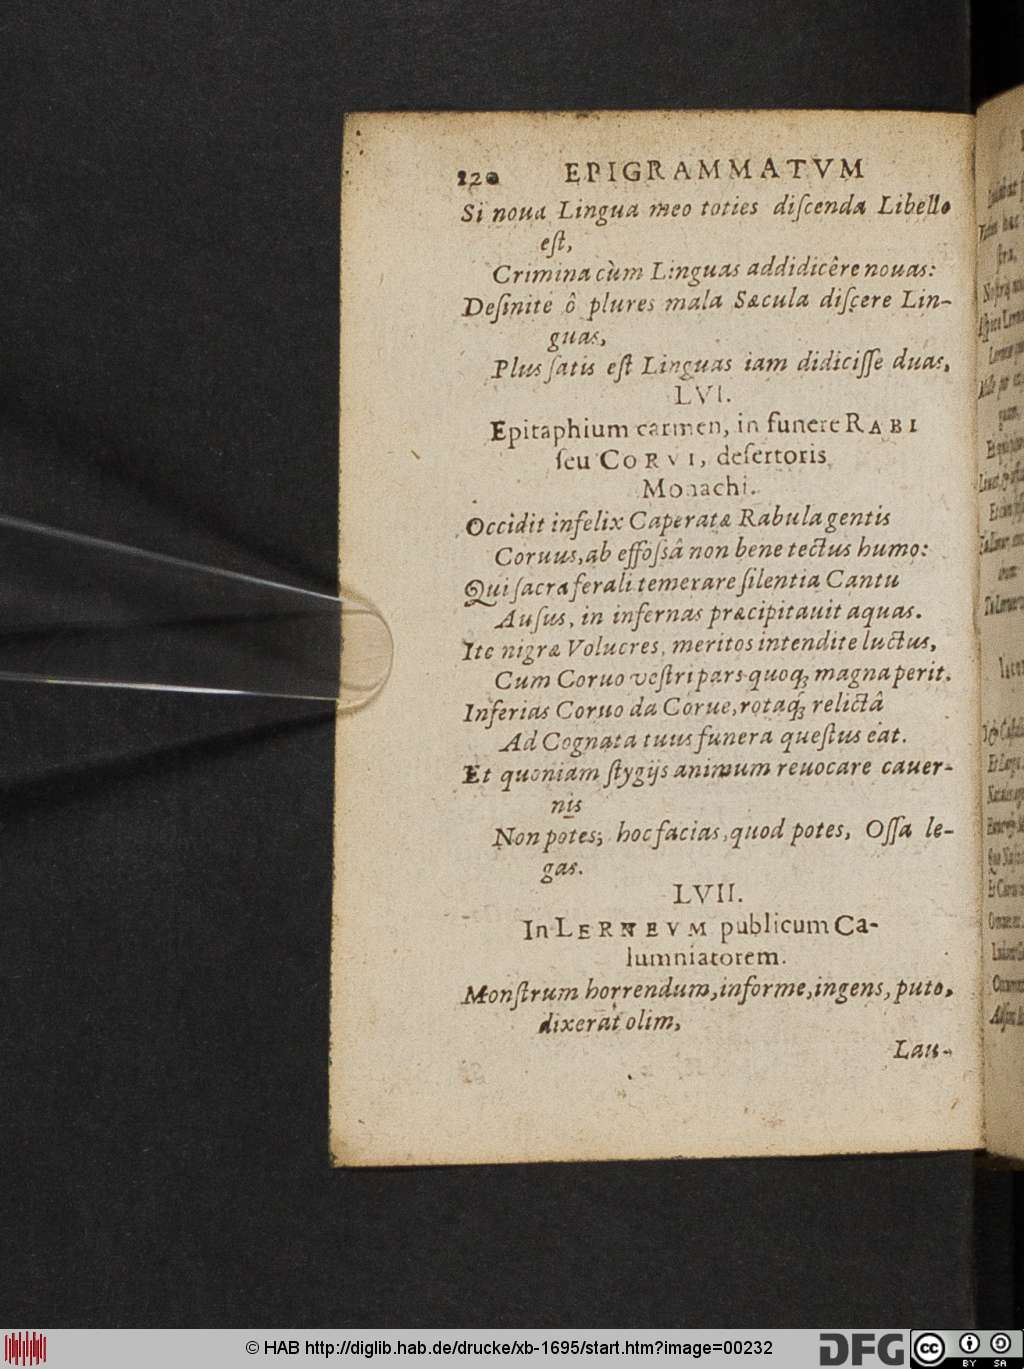 220 EPIGRAMMATVM
Si noua Lingua meo toties diſcenda Libello
eſt,
Crimina cùm Linguas addidicêre nouas:
Deſinite ô plures mala Sæcula diſcere Lin-
guas,
Plus ſatis eſt Linguas iam didiciſſe duas,
LVI.
Epitaphium carmen, in funere RABI
ſeu CORVI, deſertoris
Monachi.
Occidit infelix Caperatæ Rabula gentis
Coruus, ab effoſsâ non bene tectus humo:
Qui ſacra ferali temerare ſilentia Cantu
Auſus, in infernas præcipitauit aquas.
Ite nigræ Volucres, meritos intendite luctus,
Cum Coruo veſtri pars quoq́; magna perit.
Inferias Coruo da Corue, rotaq́; relictâ
Ad Cognata tuus funera queſtus eat.
Et quoniam ſtygijs animum reuocare cauer-
nis
Non potes; hoc facias, quod potes, Oſſa le-
gas.
LVII.
In LERNEVM publicum Ca-
lumniatorem.
Monſtrum horrendum, informe, ingens, puto,
dixerat olim,
Lau-
© HAB http://diglib.hab.de/drucke/xb-1695/start.htm?image=00232
DFG
cc BY SA